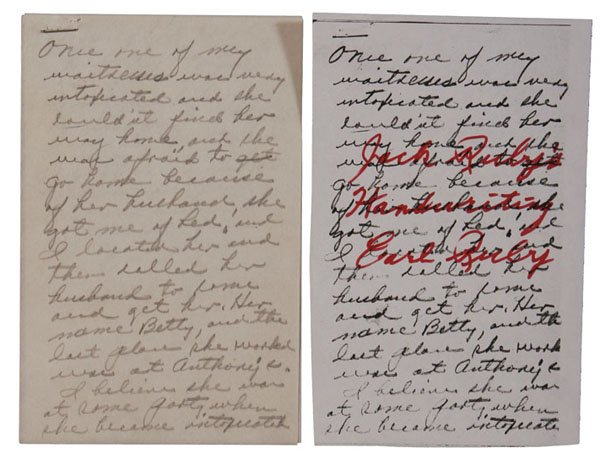 Once one of my
waitresses was very
intoxicated and she
could'nt find her
way home, and she
was afraid to get
go home because
of her husband, she
got me of bed, and
I located her and
then called her
husband to come
and get her. Her
name Betty, and the
last place she worked
was at Anthony's.
I believe she was
at some party, when
she became intoxicated
Once one of my
waitresses was very
intoxicated and she
could'nt find her
way home, and she
was
Jack Ruby's
go home because
of
Handwriting
got me of bed, and
I
Earl Ruby
then called her
husband to come
and get her. Her
name Betty, and the
last place she worked
was at Anthony's.
I believe she was
at some party, when
she became intoxicated